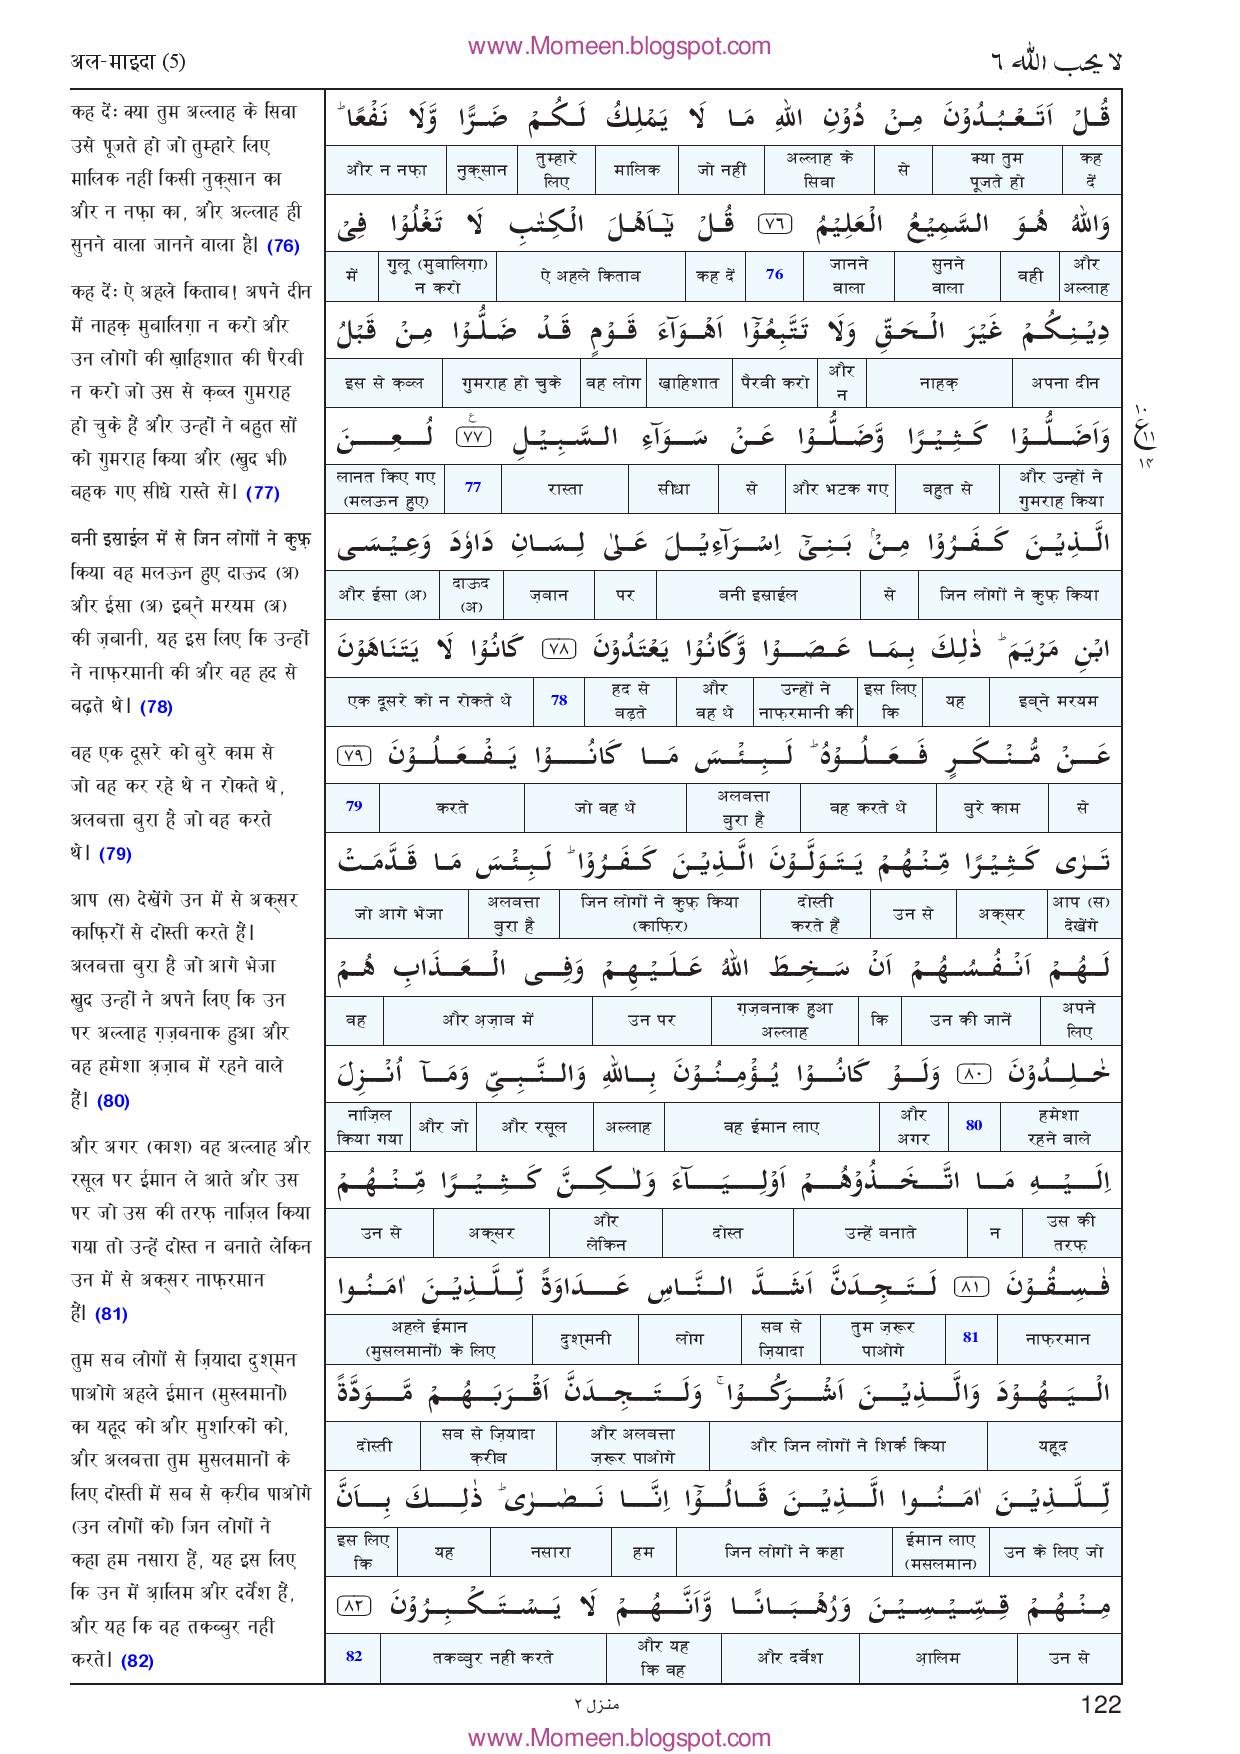 www.Momeen.blogspot.com
अल-माइदा (5)
لا يحب الله ٦
कह दें: क्या तुम अल्लाह के सिवा
उसे पूजते हो जो तुम्हारे लिए
मालिक नहीं किसी नुक़्सान का
और न नफ़ा का, और अल्लाह ही
सुनने वाला जानने वाला है। (76)
कह दें: ऐ अहले किताब! अपने दीन
में नाहक़ मुबालिग़ा न करो और
उन लोगों की ख़ाहिशात की पैरवी
न करो जो उस से क़ब्ल गुमराह
हो चुके हैं और उन्हों ने बहुत सों
को गुमराह किया और (खुद भी)
बहक गए सीधे रास्ते से। (77)
बनी इस्राईल में से जिन लोगों ने कुफ़्र
किया वह मलऊन हुए दाऊद (अ)
और ईसा (अ) इब्ने मरयम (अ)
की ज़बानी, यह इस लिए कि उन्हों
ने नाफ़रमानी की और वह हद से
बढ़ते थे। (78)
वह एक दूसरे को बुरे काम से
जो वह कर रहे थे न रोकते थे,
अलबत्ता बुरा है जो वह करते
थे। (79)
आप (स) देखेंगे उन में से अक्सर
काफ़िरों से दोस्ती करते हैं।
अलबत्ता बुरा है जो आगे भेजा
खुद उन्हों ने अपने लिए कि उन
पर अल्लाह ग़ज़बनाक हुआ और
वह हमेशा अ़ज़ाब में रहने वाले
हैं। (80)
और अगर (काश) वह अल्लाह और
रसूल पर ईमान ले आते और उस
पर जो उस की तरफ़ नाज़िल किया
गया तो उन्हें दोस्त न बनाते लेकिन
उन में से अक्सर नाफ़रमान
हैं। (81)
तुम सब लोगों से ज़ियादा दुश्मन
पाओगे अहले ईमान (मुस्लमानों)
का यहूद को और मुशरिकों को,
और अलबत्ता तुम मुसलमानों के
लिए दोस्ती में सब से क़रीब पाओगे
(उन लोगों को) जिन लोगों ने
कहा हम नसारा हैं, यह इस लिए
कि उन में आ़लिम और दर्वेश हैं,
और यह कि वह तकब्बुर नही
करते। (82)
قُلْ اَتَعْبُدُوْنَ مِنْ دُوْنِ اللهِ مَا لَا يَمْلِكُ لَكُمْ ضَرًّا وَّلَا نَفْعًا ؕ
कह दें क्या तुम पूजते हो से अल्लाह के सिवा जो नहीं मालिक तुम्हारे लिए नुक़्सान और न नफ़ा
وَاللهُ هُوَ السَّمِيْعُ الْعَلِيْمُ ٧٦ قُلْ يٰٓاَهْلَ الْكِتٰبِ لَا تَغْلُوْا فِىْ
और अल्लाह वही सुनने वाला जानने वाला 76 कह दें ऐ अहले किताब गुलू (मुबालिग़ा) न करो में
دِيْنِكُمْ غَيْرَ الْحَقِّ وَلَا تَتَّبِعُوْٓا اَهْوَآءَ قَوْمٍ قَدْ ضَلُّوْا مِنْ قَبْلُ
अपना दीन नाहक़ और न पैरवी करो ख़ाहिशात वह लोग गुमराह हो चुके इस से क़ब्ल
وَاَضَلُّوْا كَثِيْرًا وَّضَلُّوْا عَنْ سَوَآءِ السَّبِيْلِ ٧٧ ع لُعِنَ
١٠ ع ١١ ١٤
और उन्हों ने गुमराह किया बहुत से और भटक गए से सीधा रास्ता 77 लानत किए गए (मलऊन हुए)
الَّذِيْنَ كَفَرُوْا مِنْۢ بَنِىْٓ اِسْرَآءِيْلَ عَلٰى لِسَانِ دَاوٗدَ وَعِيْسَى
जिन लोगों ने कुफ़्र किया से बनी इस्राईल पर ज़बान दाऊद (अ) और ईसा (अ)
ابْنِ مَرْيَمَ ؕ ذٰلِكَ بِمَا عَصَوْا وَّكَانُوْا يَعْتَدُوْنَ ٧٨ كَانُوْا لَا يَتَنَاهَوْنَ
इब्ने मरयम यह इस लिए कि उन्हों ने नाफ़रमानी की और वह थे हद से बढ़ते 78 एक दूसरे को न रोकते थे
عَنْ مُّنْكَرٍ فَعَلُوْهُ ؕ لَبِئْسَ مَا كَانُوْا يَفْعَلُوْنَ ٧٩
से बुरे काम वह करते थे अलबत्ता बुरा है जो वह थे करते 79
تَرٰى كَثِيْرًا مِّنْهُمْ يَتَوَلَّوْنَ الَّذِيْنَ كَفَرُوْا ؕ لَبِئْسَ مَا قَدَّمَتْ
आप (स) देखेंगे अक्सर उन से दोस्ती करते हैं जिन लोगों ने कुफ़्र किया (काफ़िर) अलबत्ता बुरा है जो आगे भेजा
لَهُمْ اَنْفُسُهُمْ اَنْ سَخِطَ اللهُ عَلَيْهِمْ وَفِى الْعَذَابِ هُمْ
अपने लिए उन की जानें कि ग़ज़बनाक हुआ अल्लाह उन पर और अ़ज़ाब में वह
خٰلِدُوْنَ ٨٠ وَلَوْ كَانُوْا يُؤْمِنُوْنَ بِاللهِ وَالنَّبِىِّ وَمَآ اُنْزِلَ
हमेशा रहने वाले 80 और अगर वह ईमान लाए अल्लाह और रसूल और जो नाज़िल किया गया
اِلَيْهِ مَا اتَّخَذُوْهُمْ اَوْلِيَآءَ وَلٰكِنَّ كَثِيْرًا مِّنْهُمْ
उस की तरफ़ न उन्हें बनाते दोस्त और लेकिन अक्सर उन से
فٰسِقُوْنَ ٨١ لَتَجِدَنَّ اَشَدَّ النَّاسِ عَدَاوَةً لِّلَّذِيْنَ اٰمَنُوا
नाफ़रमान 81 तुम ज़रूर पाओगे सब से ज़ियादा लोग दुश्मनी अहले ईमान (मुसलमानों) के लिए
الْيَهُوْدَ وَالَّذِيْنَ اَشْرَكُوْا ۚ وَلَتَجِدَنَّ اَقْرَبَهُمْ مَّوَدَّةً
यहूद और जिन लोगों ने शिर्क किया और अलबत्ता ज़रूर पाओगे सब से ज़ियादा क़रीब दोस्ती
لِّلَّذِيْنَ اٰمَنُوا الَّذِيْنَ قَالُوْٓا اِنَّا نَصٰرٰى ؕ ذٰلِكَ بِاَنَّ
उन के लिए जो ईमान लाए (मसलमान) जिन लोगों ने कहा हम नसारा यह इस लिए कि
مِنْهُمْ قِسِّيْسِيْنَ وَرُهْبَانًا وَّاَنَّهُمْ لَا يَسْتَكْبِرُوْنَ ٨٢
उन से आ़लिम और दर्वेश और यह कि वह तकब्बुर नहीं करते 82
منزل ٢
122
www.Momeen.blogspot.com